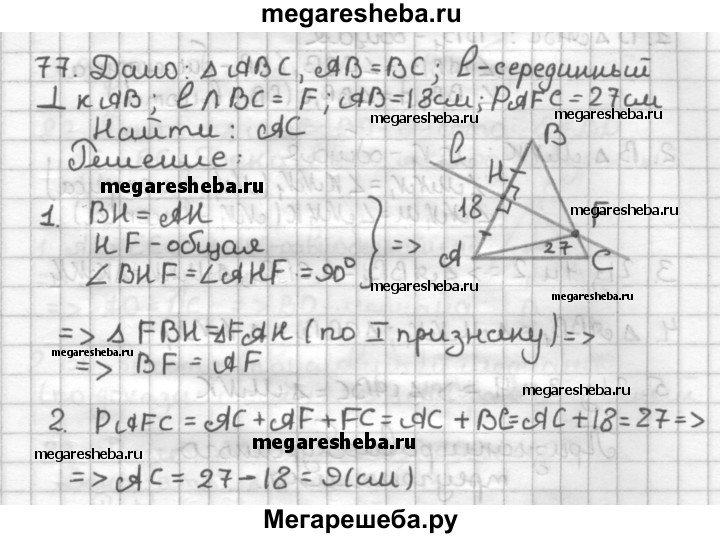 megaresheba.ru
77. Дано: △ABC, AB=BC; l-серединный
⊥ к AB; l∩BC = F; AB=18см; PAFC=27см
megaresheba.ru
megaresheba.ru
Найти: AC
Решение:
megaresheba.ru
l
H
B
18
F
megaresheba.ru
A
27
C
1. BH = AH
HF - общая
∠BHF = ∠AHF = 90°
} =>
megaresheba.ru
megaresheba.ru
=> △FBH=△FAH (по I признаку) =>
megaresheba.ru
=> BF = AF
megaresheba.ru
2. PAFC = AC+AF+FC=AC+BC=AC+18=27=>
megaresheba.ru
megaresheba.ru
=> AC = 27-18=9(см)
megaresheba.ru
Мегарешеба.ру